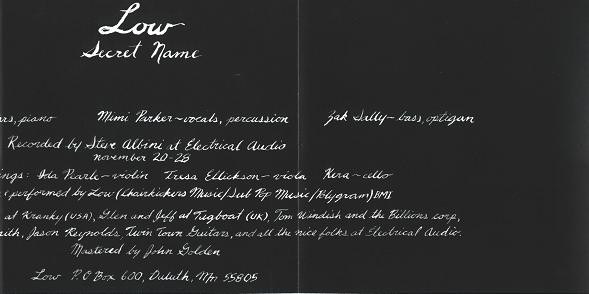 Low
Secret Name
ars, piano Mimi Parker~vocals, percussion Zak Sally~bass, optigan
Recorded by Steve Albini at Electrical Audio
november 20-28
ings: Ida Pearle~violin Tresa Ellickson~viola Kera~cello
performed by Low (Chairkickers Music/Sub Pop Music/Polygram) BMI
at Kranky (USA), Glen and Jeff at Tugboat (UK), Tom Windish and the Billions corp,
ith, Jason Reynolds, Twin Town Guitars, and all the nice folks at Electrical Audio.
Mastered by John Golden
Low P.O Box 600, Duluth, MN 55805